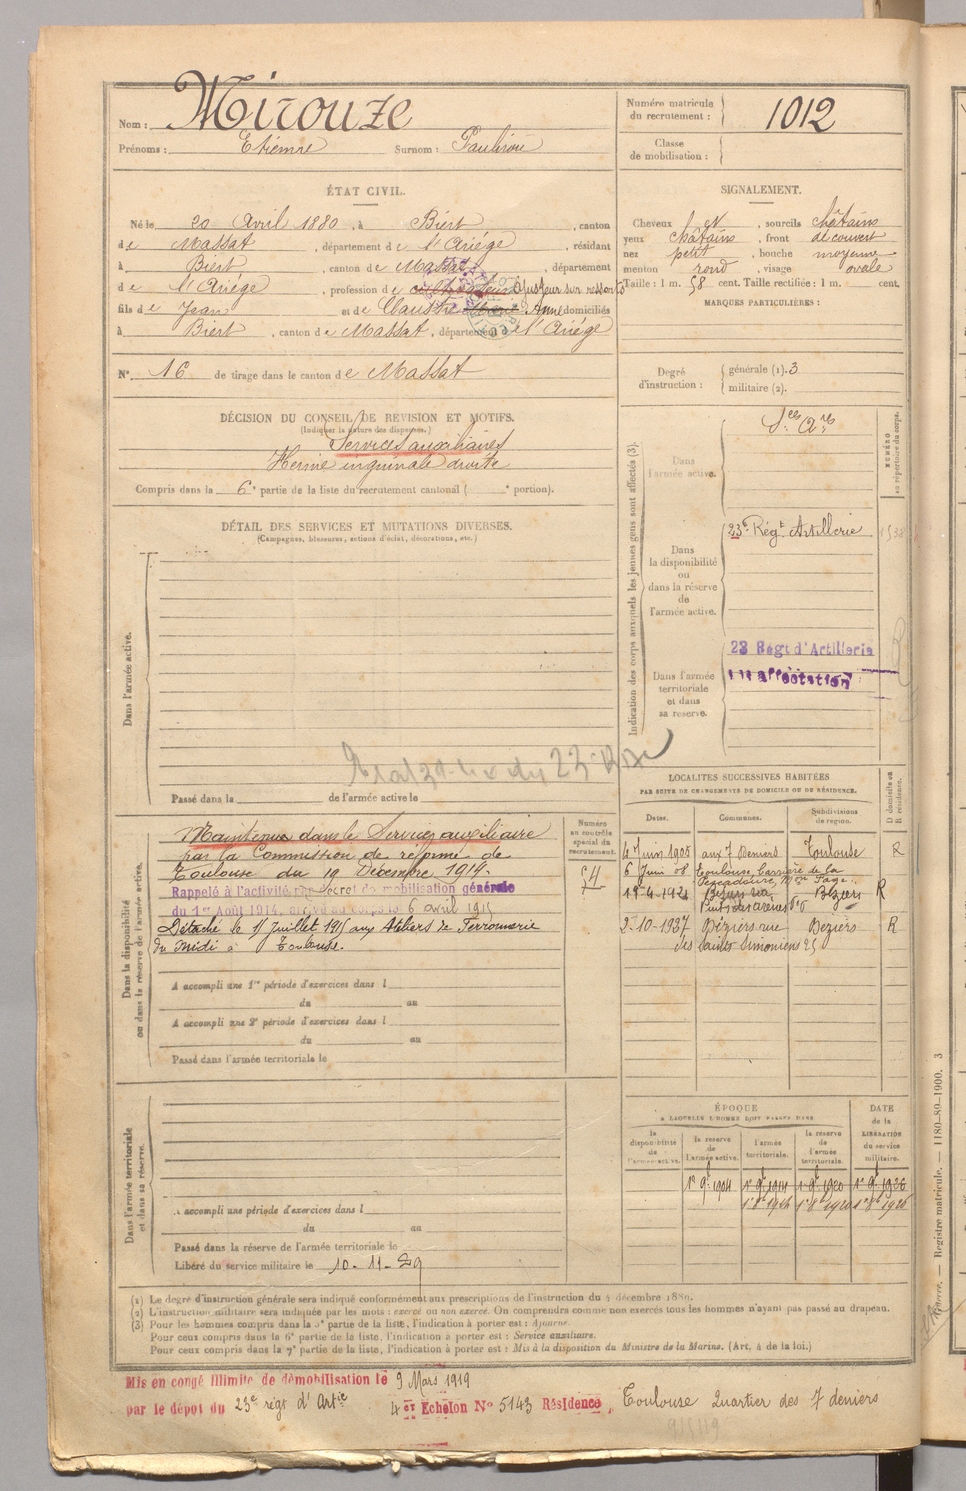 Nom : Mirouze
Prénoms : Etienne Surnom :
Numéro matricule du recrutement : 1012
Classe de mobilisation :
ÉTAT CIVIL.
Né le 20 Avril 1880, à Biert, canton
de Massat, département de l'Ariége, résidant
à Biert, canton de Massat, département
de l'Ariége, profession de cultivateur Ajusteur sur ressorts
fils de Jean et de Anne domiciliés
à Biert, canton de Massat, département de l'Ariége
N° 16 de tirage dans le canton de Massat
SIGNALEMENT.
Cheveux et, sourcils châtains
yeux châtains, front découvert
nez petit, bouche moyenne
menton rond, visage ovale
Taille : 1 m. 58 cent. Taille rectifiée : 1 m. cent.
MARQUES PARTICULIÈRES :
Degré d'instruction : générale (1). 3
militaire (2).
DÉCISION DU CONSEIL DE REVISION ET MOTIFS.
(Indiquer la nature des dispenses.)
Services auxiliaires
Hernie inguinale droite
Compris dans la 6e partie de la liste du recrutement cantonal ( e portion).
Indication des corps auxquels les jeunes gens sont affectés (3).
NUMÉRO au répertoire du corps.
Dans l'armée active.
Sces Ares
Dans la disponibilité ou dans la réserve de l'armée active.
23e Régt Artillerie
Dans l'armée territoriale et dans sa réserve.
23 Régt d'Artillerie
affectation
DÉTAIL DES SERVICES ET MUTATIONS DIVERSES.
(Campagnes, blessures, actions d'éclat, décorations, etc.)
Dans l'armée active.
Passé dans la de l'armée active le
Dans la disponibilité ou dans la réserve de l'armée active.
Numéro au contrôle spécial du recrutement.
Maintenu dans le Service auxiliaire
par la Commission de réforme de
Toulouse du 19 Décembre 1914.
Rappelé à l'activité par Décret de mobilisation générale
du 1er Août 1914, arrivé au corps le 6 avril 1915
Détaché le 15 Juillet 1915 aux Ateliers de Ferronnerie
du Midi à Toulouse.
A accompli une 1re période d'exercices dans l
du au
A accompli une 2e période d'exercices dans l
du au
Passé dans l'armée territoriale le
LOCALITÉS SUCCESSIVES HABITÉES
PAR SUITE DE CHANGEMENTS DE DOMICILE OU DE RÉSIDENCE.
D domicile ou R résidence.
Dates. Communes. Subdivisions de région.
4 Juin 1905 aux 7 Deniers Toulouse R
6 Juin 08 Toulouse, barrière de la
Pescadoure, Mon Page
19-4-1921 Béziers rue Béziers R
Puits des arènes
2-10-1937 Béziers rue Béziers R
des Saints Simoniens 25
Dans l'armée territoriale et dans sa réserve.
A accompli une période d'exercices dans l
du au
Passé dans la réserve de l'armée territoriale le
Libéré du service militaire le 10-11-29
ÉPOQUE
A LAQUELLE L'HOMME DOIT PASSER DANS
la disponibilité de l'armée active. la réserve de l'armée active. l'armée territoriale. la réserve de l'armée territoriale. DATE de la LIBÉRATION du service militaire.
1er 9bre 1904 1er 9bre 1914 1er 9bre 1920 1er 9bre 1926
(1) Le degré d'instruction générale sera indiqué conformément aux prescriptions de l'instruction du 4 décembre 1889.
(2) L'instruction militaire sera indiquée par les mots : exercé ou non exercé. On comprendra comme non exercés tous les hommes n'ayant pas passé au drapeau.
(3) Pour les hommes compris dans la 5e partie de la liste, l'indication à porter est : Ajourné.
Pour ceux compris dans la 6e partie de la liste, l'indication à porter est : Service auxiliaire.
Pour ceux compris dans la 7e partie de la liste, l'indication à porter est : Mis à la disposition du Ministre de la Marine. (Art. 4 de la loi.)
Mis en congé illimité de démobilisation le 9 Mars 1919
par le dépôt du 23e régt d'Artie 4er Echelon N° 5143 Résidence, Toulouse Quartier des 7 deniers
Registre matricule. — 1180-89-1900. 3